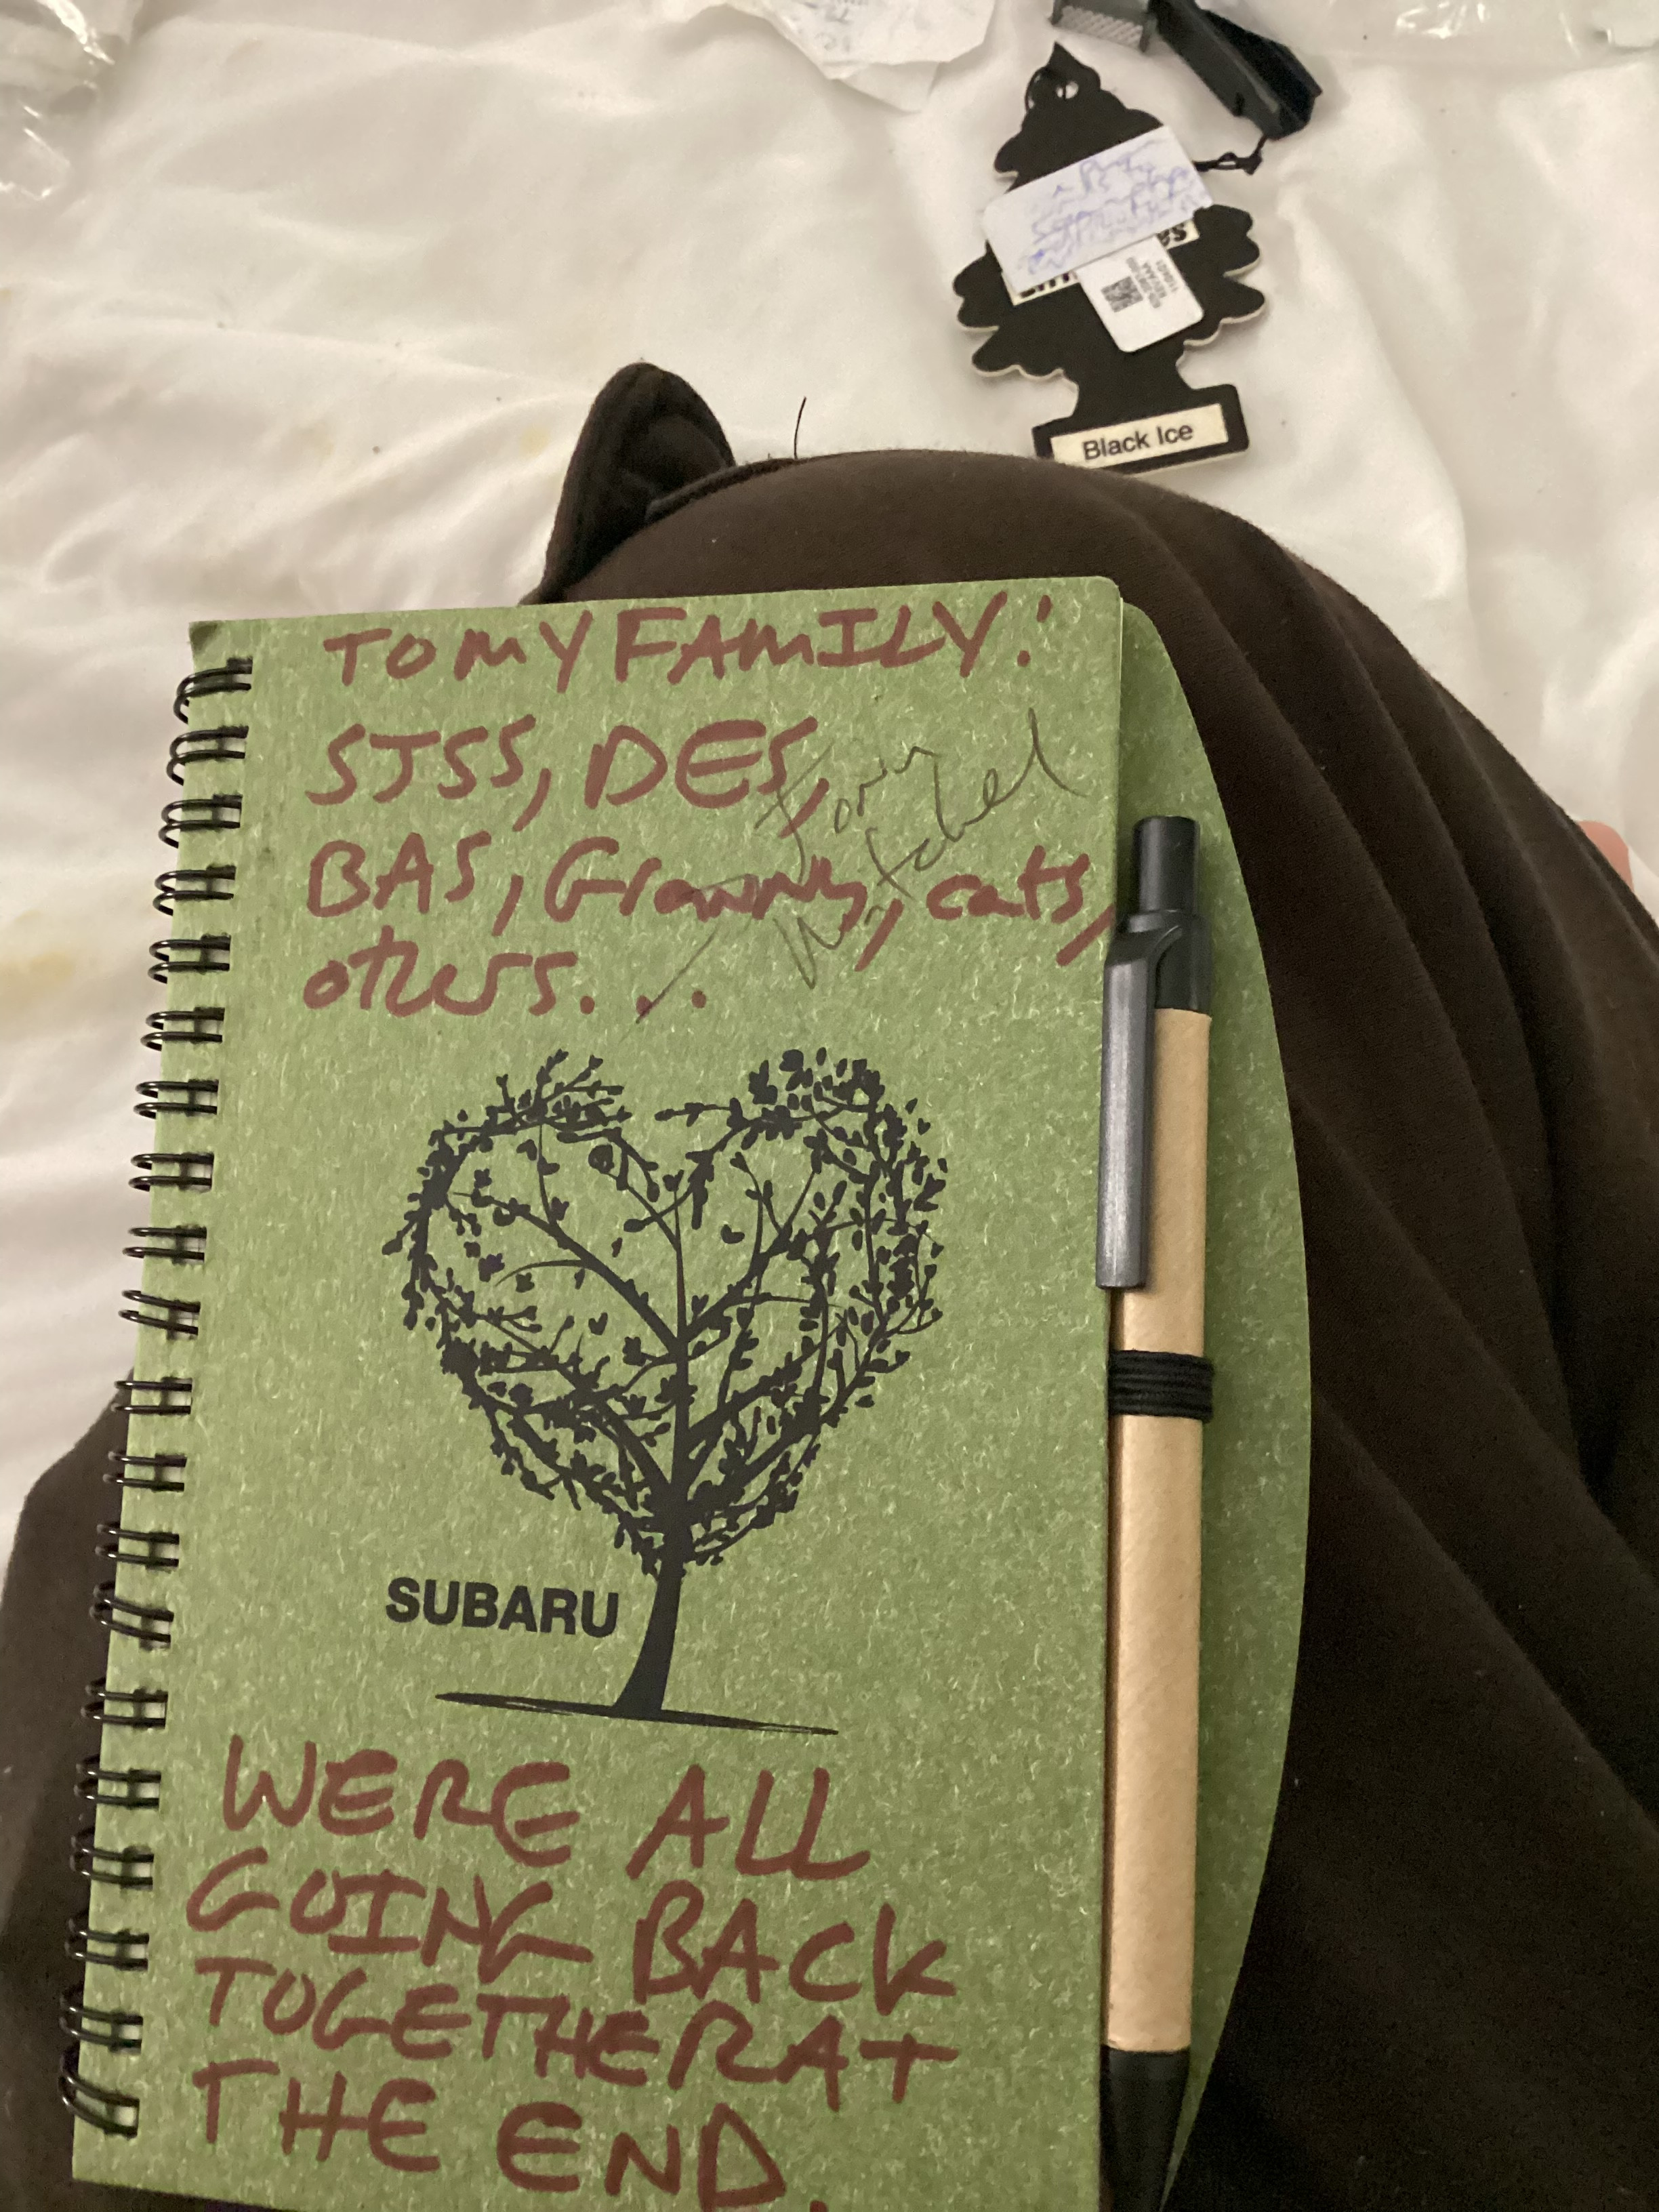 Black Ice
TO MY FAMILY:
SJSS, DES,
BAS, Granny, cats,
others...
Tony
Mitchel
SUBARU
WERE ALL
GOING BACK
TOGETHER AT
THE END.